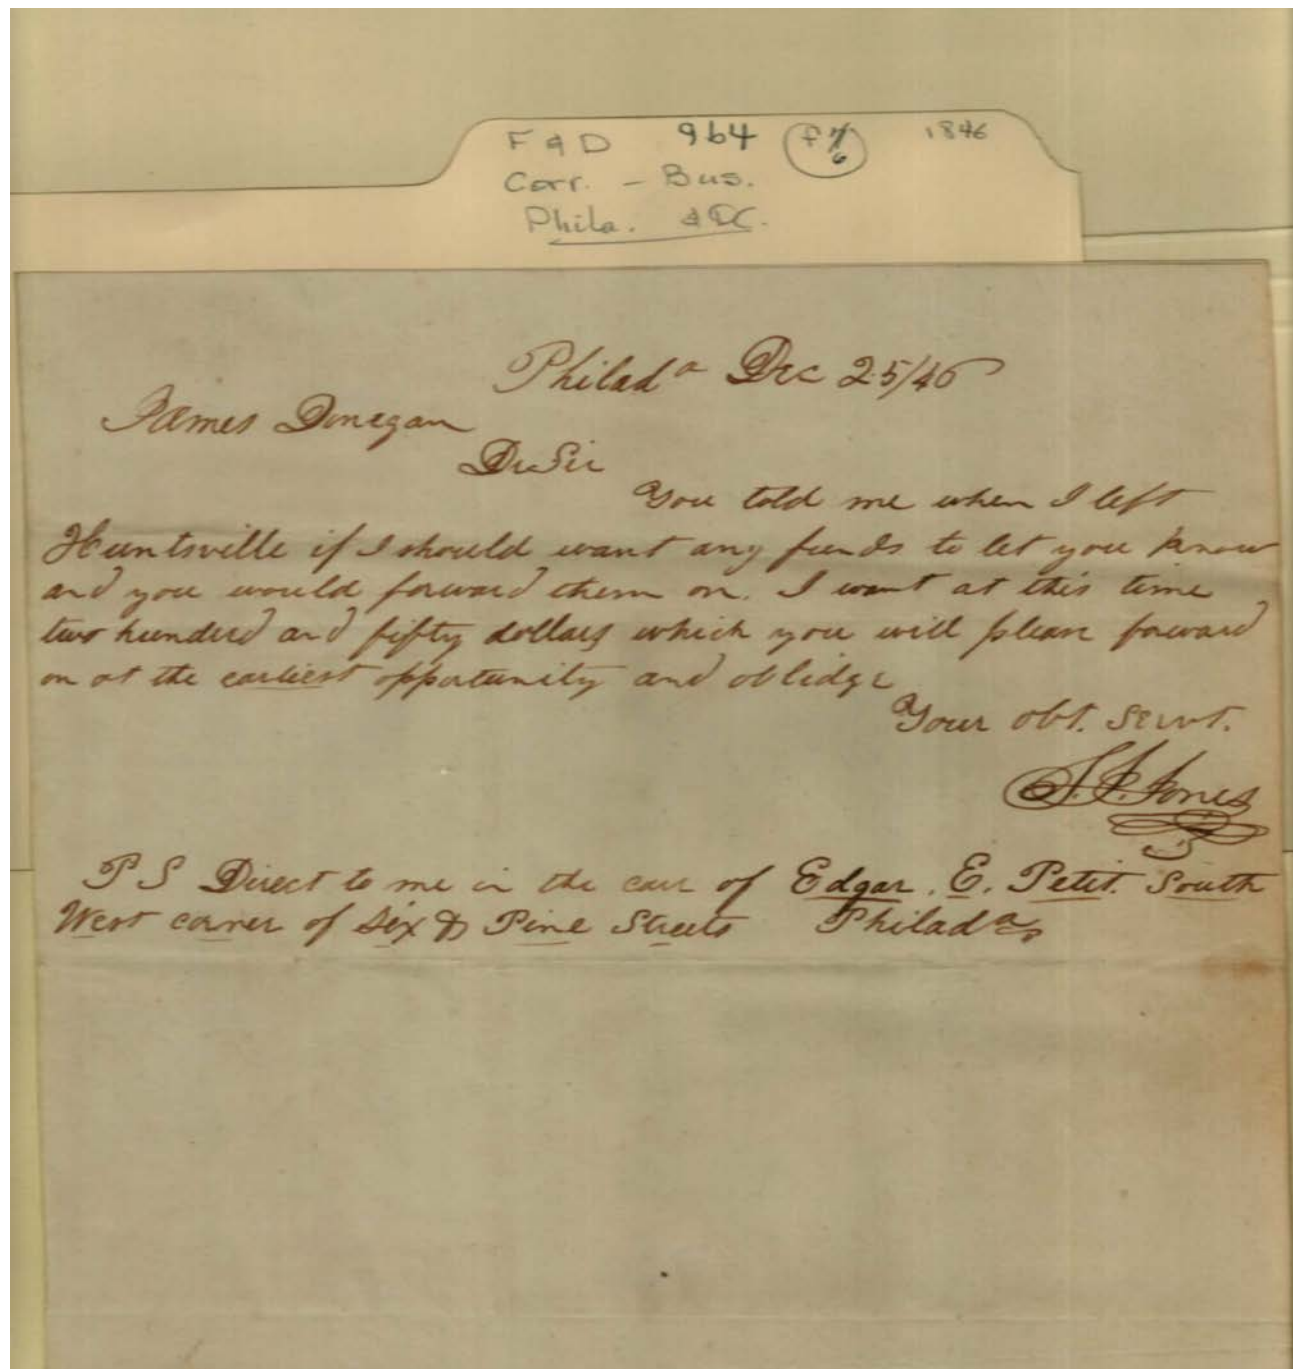 F & D 964 1846
Corr. - Bus.
Phila. & DC.
Philad a Dec 25/46
James Donegan
Dr Sir
You told me when I left
Huntsville if I should want any funds to let you know
and you would forward them on. I want at this time
two hunderd and fifty dollars which you will please forward
on at the earliest opportunity and oblidge
Your obt. Servt.
S. S. Jones
P S Direct to me in the care of Edgar. E. Petit. South
West corner of Six & Pine Streets Philada